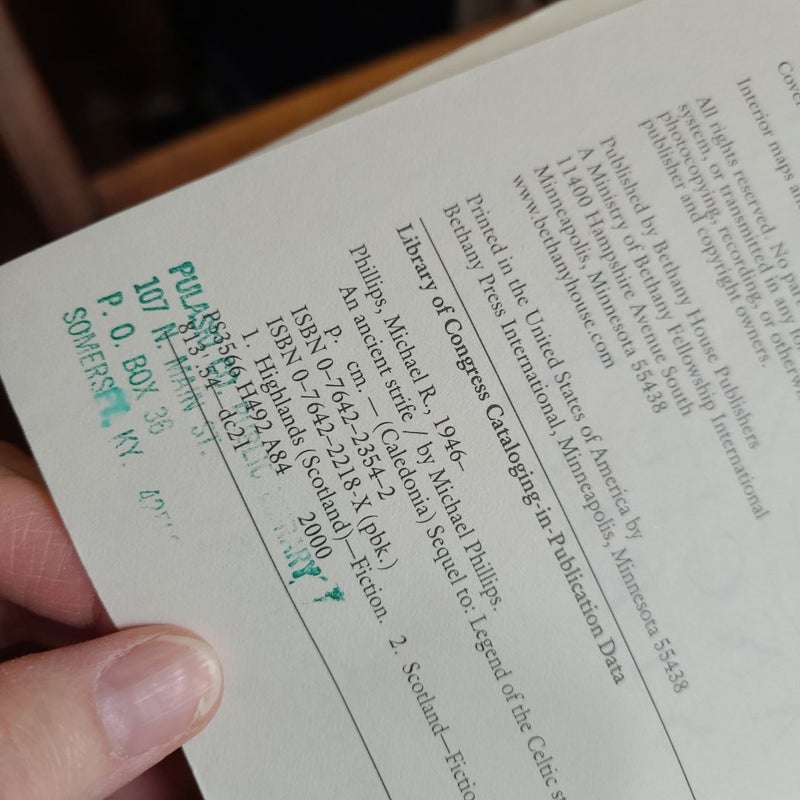 Cover
Interior maps an
All rights reserved. No part
system, or transmitted in any for
photocopying, recording, or otherw
publisher and copyright owners.
Published by Bethany House Publishers
A Ministry of Bethany Fellowship International
11400 Hampshire Avenue South
Minneapolis, Minnesota 55438
www.bethanyhouse.com
Printed in the United States of America by
Bethany Press International, Minneapolis, Minnesota 55438
Library of Congress Cataloging-in-Publication Data
Phillips, Michael R., 1946–
An ancient strife / by Michael Phillips.
p. cm. — (Caledonia) Sequel to: Legend of the Celtic st
ISBN 0–7642–2354–2
ISBN 0–7642–2218–X (pbk.)
1. Highlands (Scotland)—Fiction. 2. Scotland—Fictio
PS3566 H492 A84 2000
813'.54 dc21
107 N. MAIN ST.
P. O. BOX 36
KY.